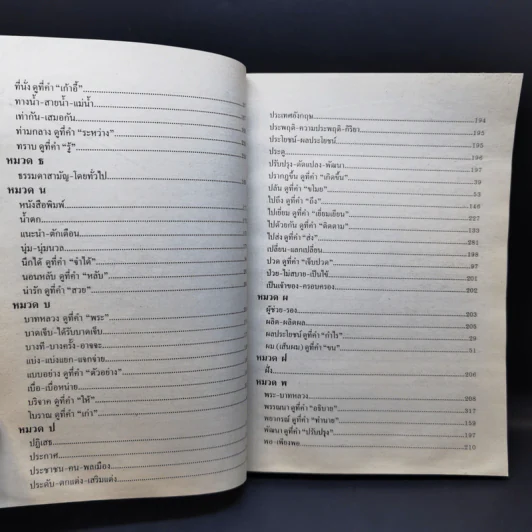 ที่นั่ง ดูที่คำ "เก้าอี้"
ทางน้ำ-สายน้ำ-แม่น้ำ
เท่ากัน-เสมอกัน
ท่ามกลาง ดูที่คำ "ระหว่าง"
ทราบ ดูที่คำ "รู้"
หมวด ธ
ธรรมดาสามัญ-โดยทั่วไป
หมวด น
หนังสือพิมพ์
น้ำตก
แนะนำ-ตักเตือน
นุ่ม-นุ่มนวล
นึกได้ ดูที่คำ "จำได้"
นอนหลับ ดูที่คำ "หลับ"
น่ารัก ดูที่คำ "สวย"
หมวด บ
บาทหลวง ดูที่คำ "พระ"
บาดเจ็บ-ได้รับบาดเจ็บ
บางที-บางครั้ง-อาจจะ
แบ่ง-แบ่งแยก-แจกจ่าย
แบบอย่าง ดูที่คำ "ตัวอย่าง"
เบื่อ-เบื่อหน่าย
บริจาค ดูที่คำ "ให้"
โบราณ ดูที่คำ "เก่า"
หมวด ป
ปฏิเสธ
ประกาศ
ประชาชน-คน-พลเมือง
ประดับ-ตกแต่ง-เสริมแต่ง
ประเทศอังกฤษ 194
ประพฤติ-ความประพฤติ-กิริยา 195
ประโยชน์-ผลประโยชน์ 195
ประตู 196
ปรับปรุง-ดัดแปลง-พัฒนา 197
ปรากฏขึ้น ดูที่คำ "เกิดขึ้น" 39
ปล้น ดูที่คำ "ขโมย" 53
ไปถึง ดูที่คำ "ถึง" 146
ไปเยี่ยม ดูที่คำ "เยี่ยมเยียน" 227
ไปด้วยกัน ดูที่คำ "ติดตาม" 133
ไปส่ง ดูที่คำ "ส่ง" 281
เปลี่ยน-แลกเปลี่ยน 198
ปวด ดูที่คำ "เจ็บปวด" 97
ป่วย-ไม่สบาย-เป็นไข้ 201
เป็นเจ้าของ-ครอบครอง 202
หมวด ผ
ผู้ช่วย-รอง 203
ผลิต-ผลิตผล 205
ผลประโยชน์ ดูที่คำ "กำไร" 29
ผม (เส้นผม) ดูที่คำ "ขน" 51
หมวด ฝ
ฝัง 206
หมวด พ
พระ-บาทหลวง 208
พรรณนา ดูที่คำ "อธิบาย" 317
พยากรณ์ ดูที่คำ "ทำนาย" 159
พัฒนา ดูที่คำ "ปรับปรุง" 197
พอ-เพียงพอ 210